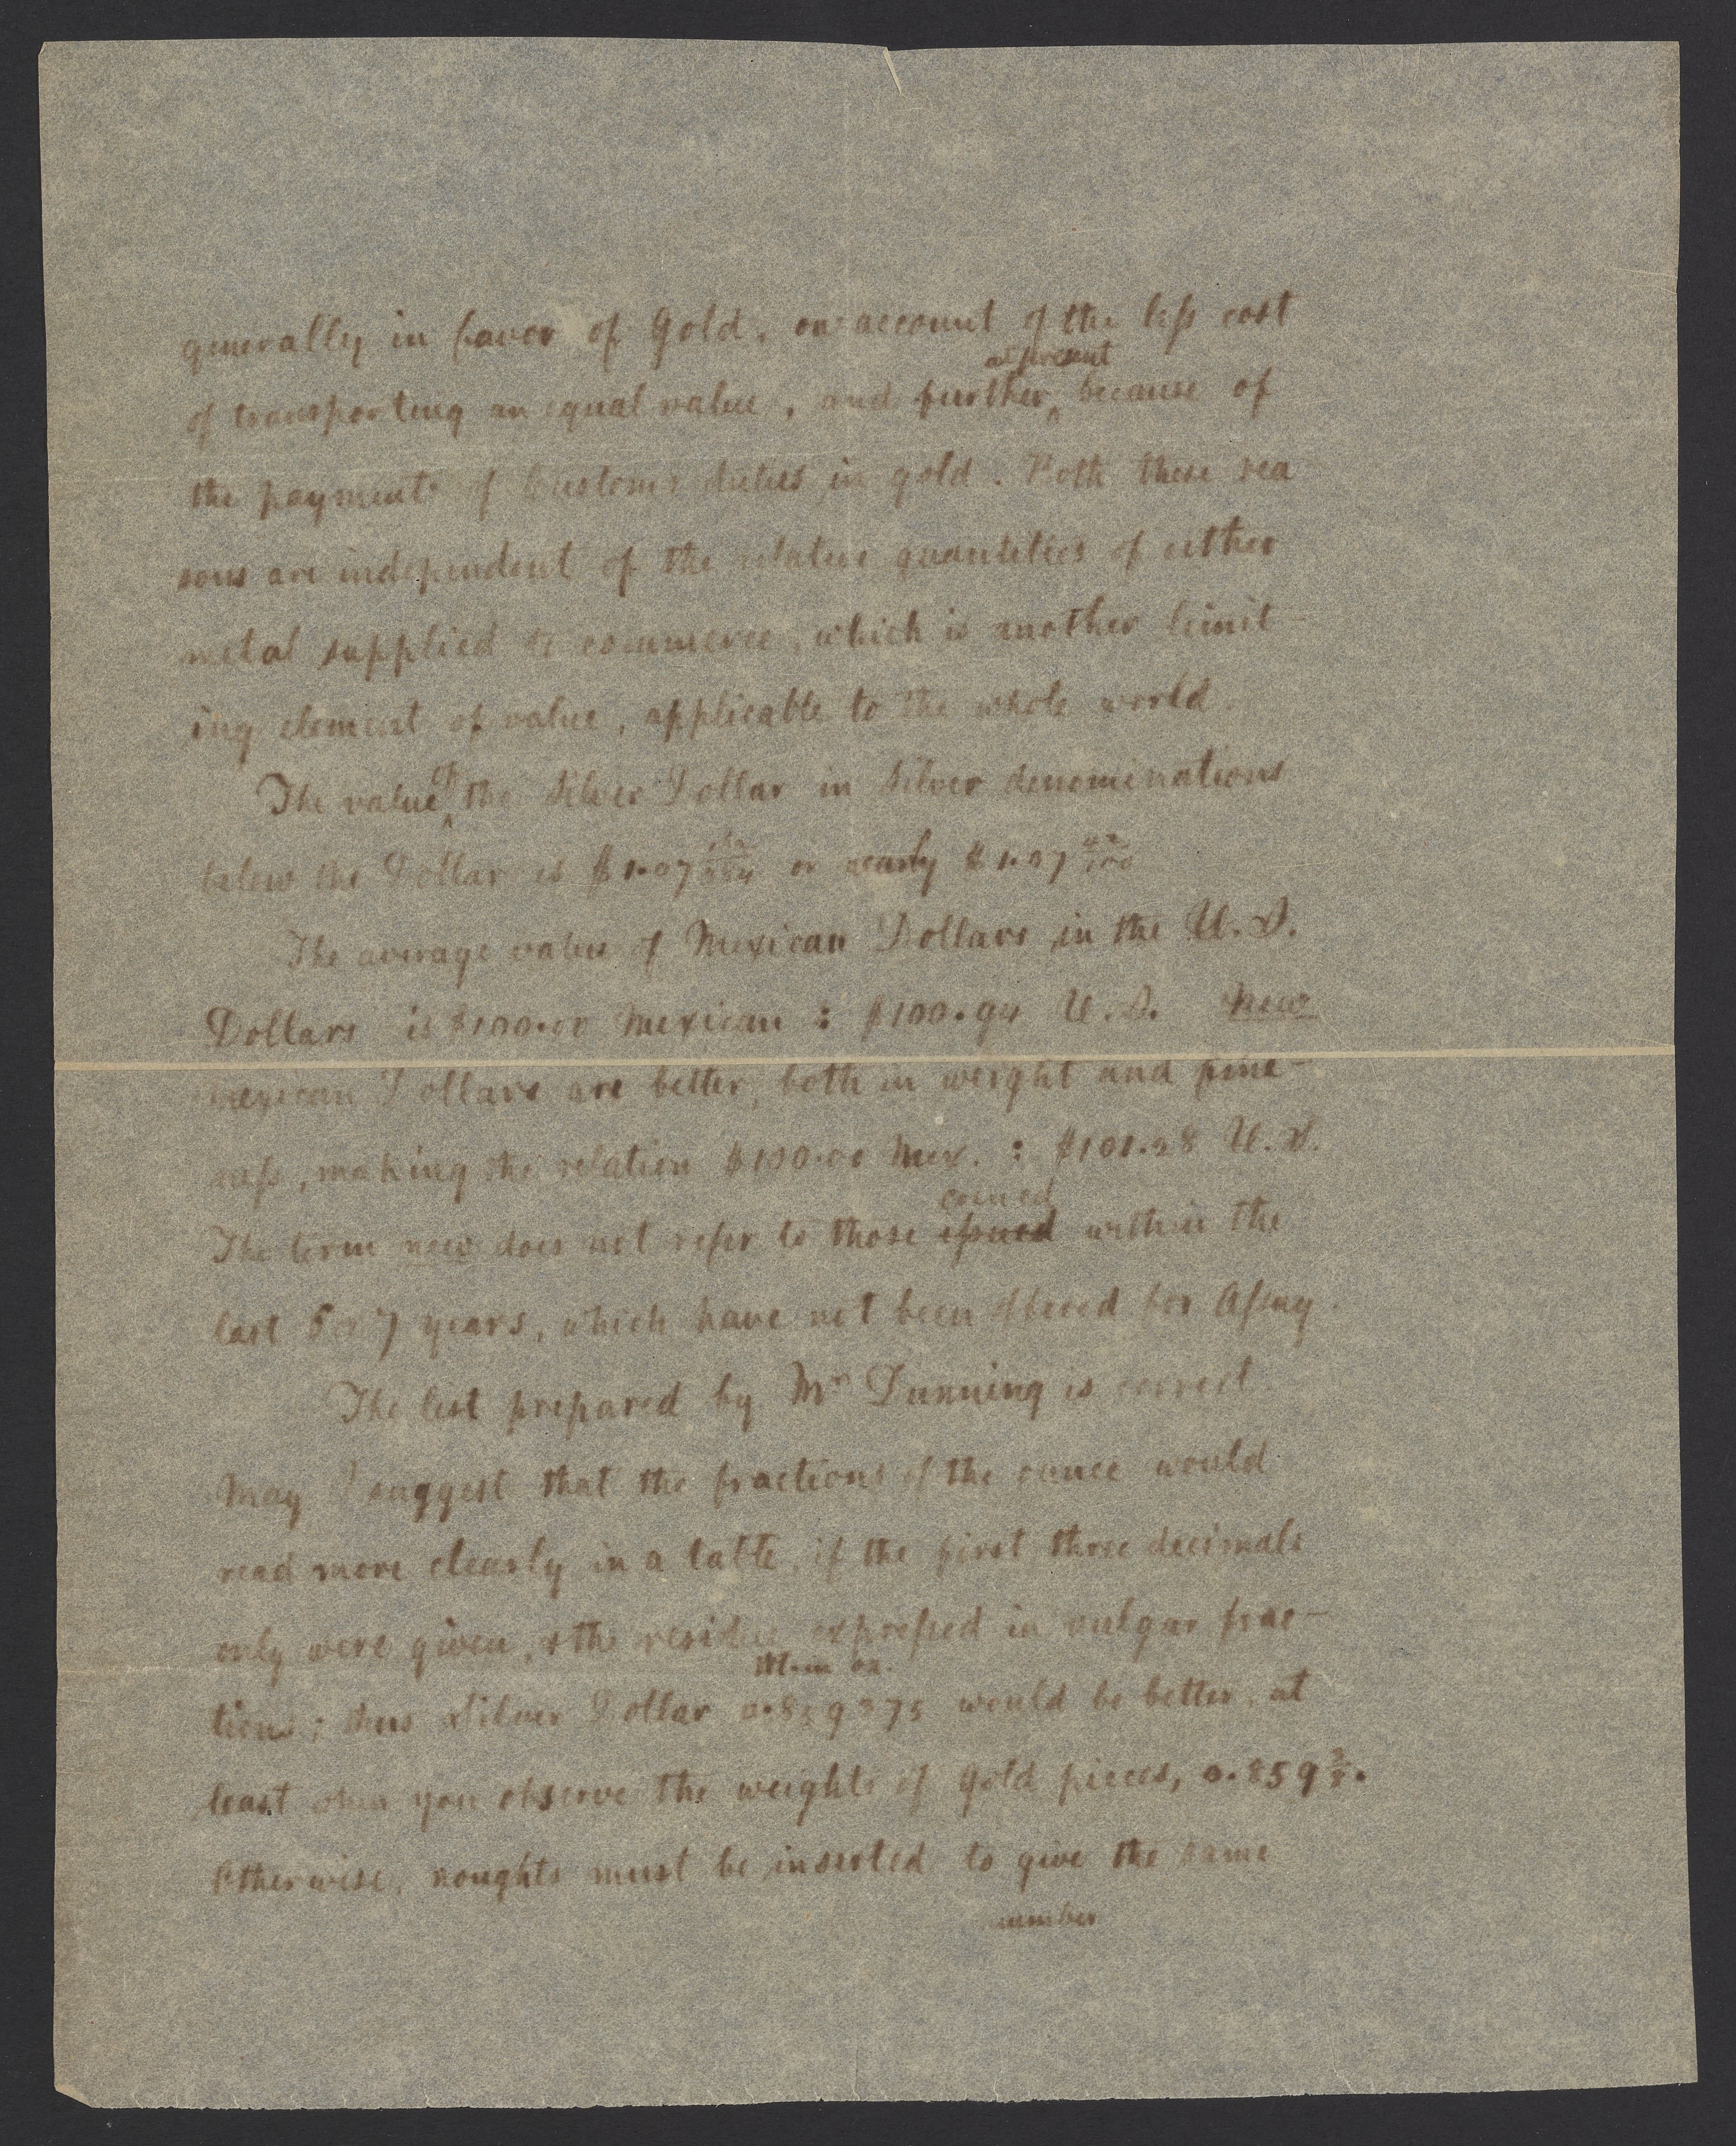 generally in favor of Gold, on account of the less cost
at present
of transporting an equal value, and further ^ because of
the payment of Customs duties in gold. Both these rea
sons are independent of the relative quantities of either
metal supplied to commerce, which is another limit-
ing element of value, applicable to the whole world.
The value ^ of the Silver Dollar in Silver denominations
below the Dollar is $1.07 or nearly $1.07 42/100
The average value of Mexican Dollars in the U.S.
Dollars is $100.00 Mexican : $100.94 U.S. New
Mexican Dollars are better, both in weight and fine-
ness, making the relation $100.00 Mex. : $101.28 U.S.
coined
The term new does not refer to those issued within the
last 5 or 7 years, which have not been offered for Assay.
The list prepared by Mr Dunning is correct.
May I suggest that the fractions of the ounce would
read more clearly in a table, if the first three decimals
only were given, & the residue expressed in vulgar frac-
oz.
tions; thus Silver Dollar 0.859375 would be better, at
least when you observe the weights of Gold pieces, 0.859 3/8.
Otherwise, noughts must be inserted to give the same
number